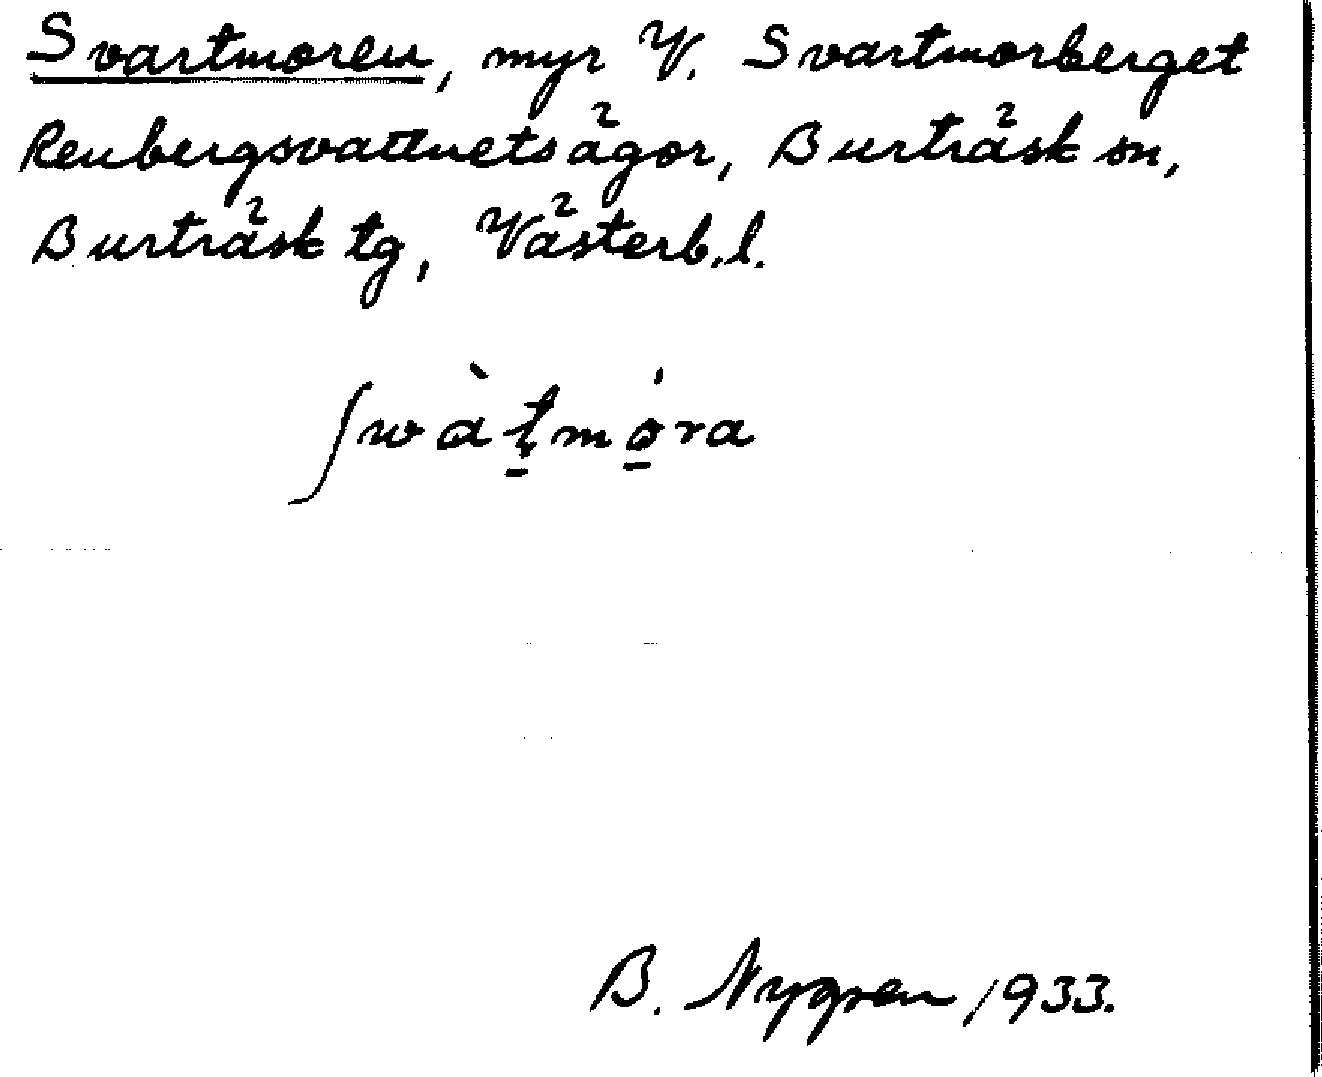 Svartmoren, myr V. Svartmorberget
Renbergsvattnets ägor, Burträsk sn,
Burträsk tg, Västerb.l.
ʃwàṭmóra
B. Nygren 1933.